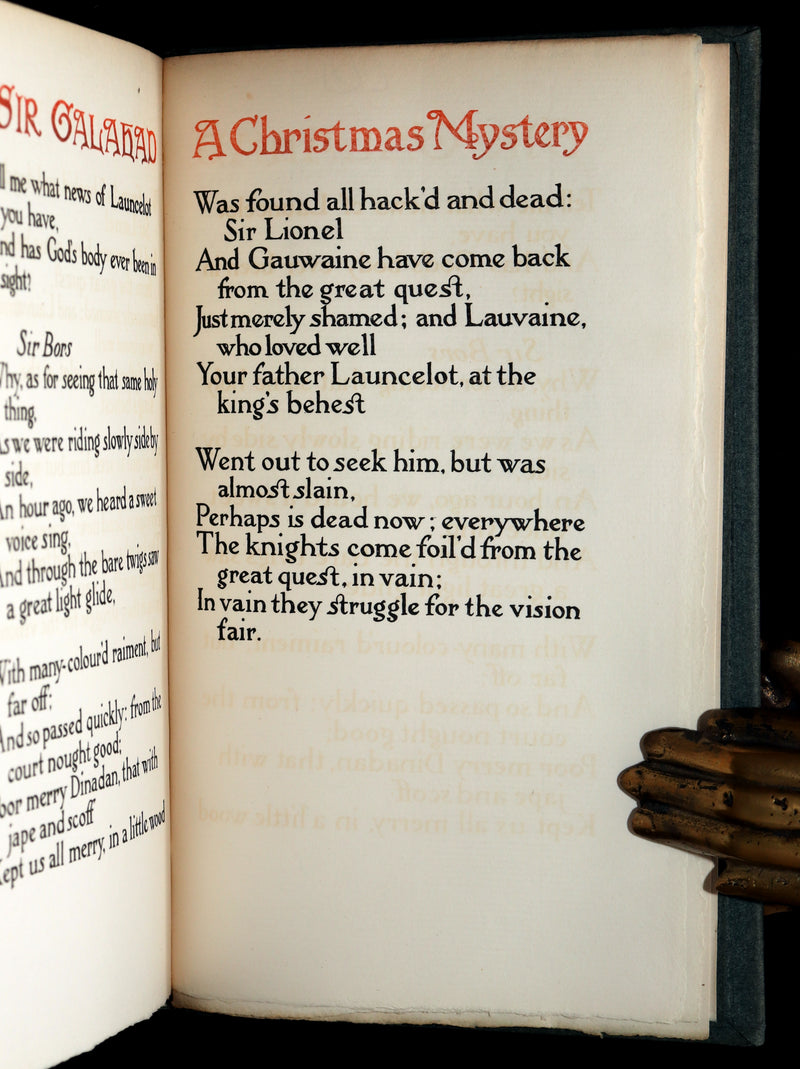 SIR GALAHAD
me what news of Launcelot
you have,
has God's body ever been in
sight?
Sir Bors
as for seeing that same holy
thing,
we were riding slowly side by
side,
hour ago, we heard a sweet
voice sing,
And through the bare twigs saw
a great light glide,
With many-colour'd raiment, but
far off;
And so passed quickly: from the
court nought good;
merry Dinadan, that with
jape and scoff
Kept us all merry, in a little wood
A Christmas Mystery
Was found all hack'd and dead:
Sir Lionel
And Gauwaine have come back
from the great quest,
Just merely shamed; and Lauvaine,
who loved well
Your father Launcelot, at the
king's behest
Went out to seek him, but was
almost slain,
Perhaps is dead now; everywhere
The knights come foil'd from the
great quest, in vain;
In vain they struggle for the vision
fair.